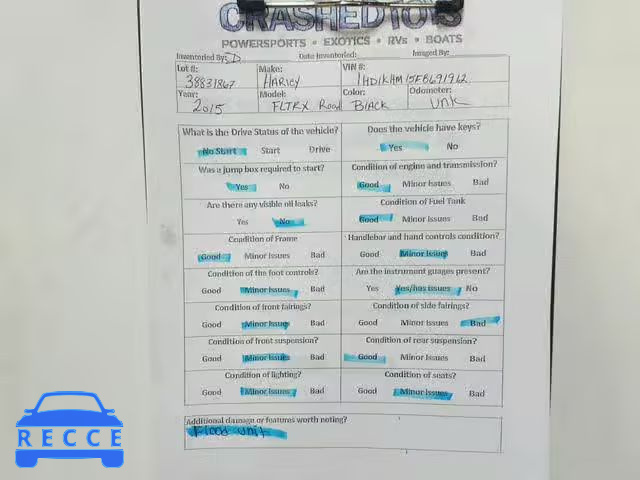 CRASHEDTOYS
POWERSPORTS • EXOTICS • RVs • BOATS
Inventoried By: D Date Inventoried: Imaged By:
Lot #: Make: VIN #:
38831867 HARLEY 1HD1KHM15FB691962
Year: Model: Color: Odometer:
2015 FLTRX Road Black UNK
What is the Drive Status of the vehicle? Does the vehicle have keys?
No Start Start Drive Yes No
Was a jump box required to start? Condition of engine and transmission?
Yes No Good Minor Issues Bad
Are there any visible oil leaks? Condition of Fuel Tank
Yes No Good Minor Issues Bad
Condition of Frame Handlebar and hand controls condition?
Good Minor Issues Bad Good Minor Issues Bad
Condition of the foot controls? Are the instrument guages present?
Good Minor Issues Bad Yes Yes/has issues No
Condition of front fairings? Condition of side fairings?
Good Minor Issues Bad Good Minor Issues Bad
Condition of front suspension? Condition of rear suspension?
Good Minor Issues Bad Good Minor Issues Bad
Condition of lighting? Condition of seats?
Good Minor Issues Bad Good Minor Issues Bad
Additional damage or features worth noting?
Flood unit
RECCE